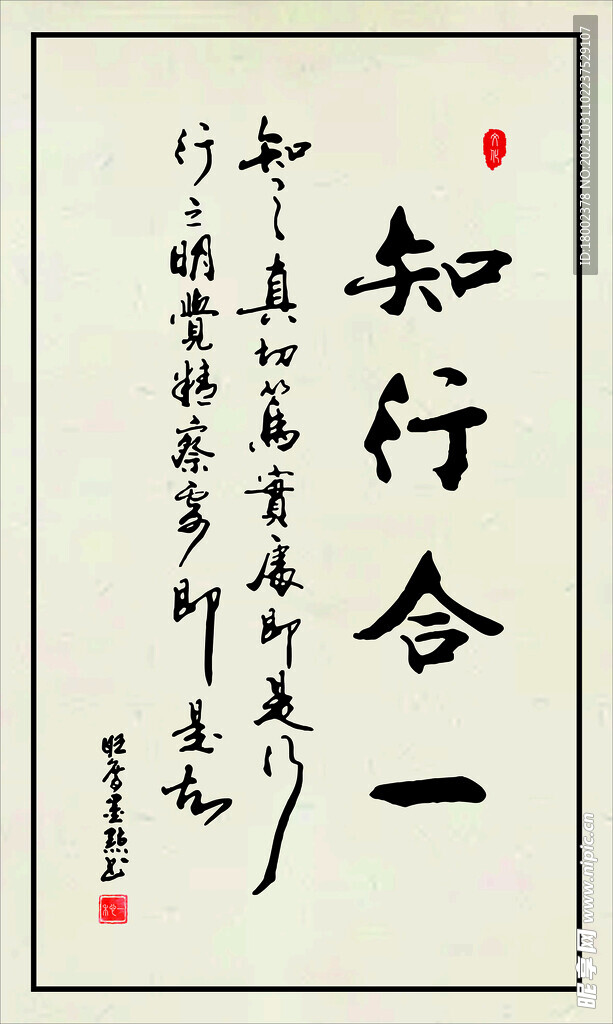 文化
知行合一
知之真切篤實處即是行
行之明覺精察處即是知
ID:18002378 NO:20231031102237529107
昵享网 www.nipic.cn